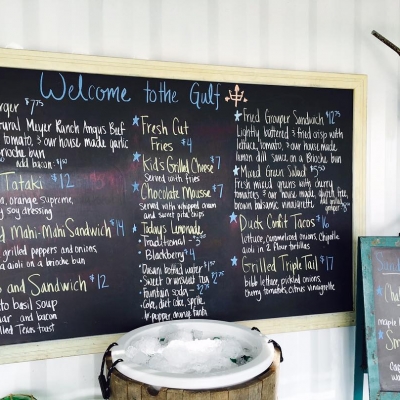 Welcome to the Gulf
urger $7.75
tural Meyer Ranch Angus Beef
tomato, & our house made garlic
brioche bun
add bacon: $1.50
Tataki $12
a, orange supreme,
soy dressing
d Mahi-Mahi Sandwich $14
grilled peppers and onions,
aioli on a brioche bun
and Sandwich $12
to basil soup
ar and bacon
lled Texas toast
Fresh Cut
Fries $4
Kids Grilled Cheese $7
Served with fries
Chocolate Mousse $7
Served with whipped cream
and sweet pita chips
Todays Lemonade
Traditional -
Blackberry $4
Dasani bottled water $1
Sweet or unsweet tea $2
fountain soda -
Coke, diet coke, sprite,
dr. pepper
Fried Grouper Sandwich
Lightly buttered & fried crisp with
lettuce, tomato, & our house made
lemon dill sauce on a Brioche bun
Mixed Green Salad $5.50
Fresh mixed greens with cherry
tomatoes, & our house made, gluten free,
brown balsamic vinaigrette
Duck Confit Tacos
lettuce, caramelized onions, Chipotle
aioli in 2 flour tortillas
Grilled Triple Tail $17
bibb lettuce, pickled onions,
cherry tomatoes, citrus vinaigrette